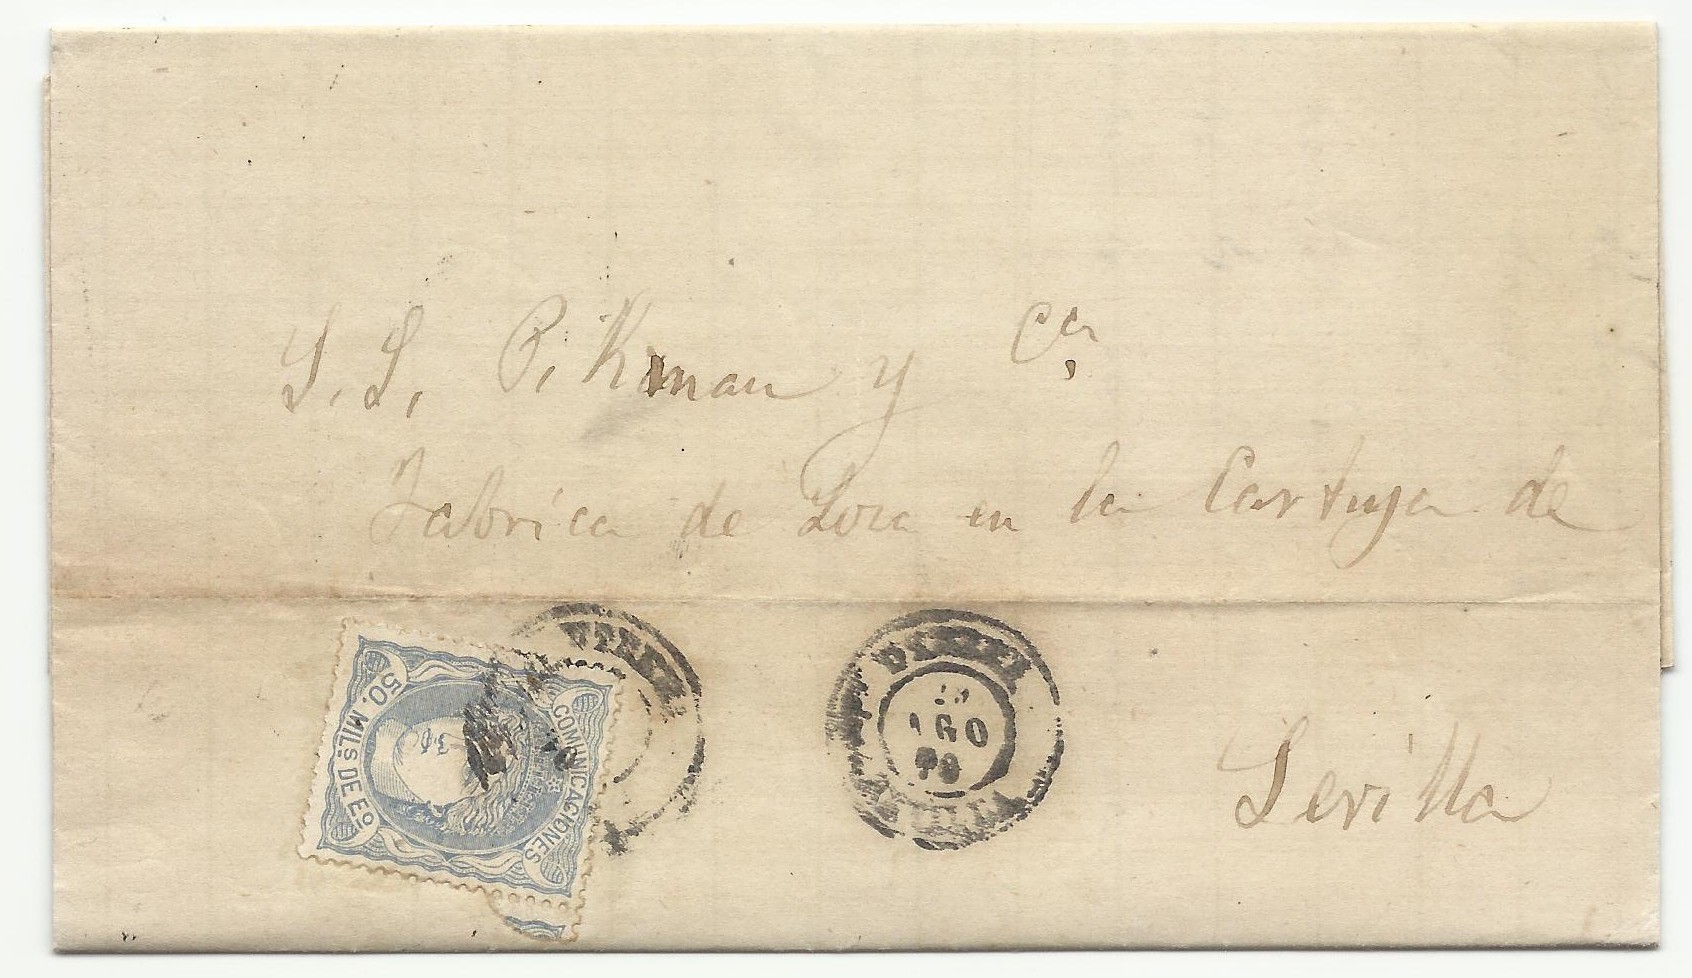 S. S. Pikman y Cª
Fabrica de Loza en la Cartuja de
Sevilla
COMUNICACIONES
50. MILs DE Eo
UTRERA
UTRERA
AGO
70
SEVILLA